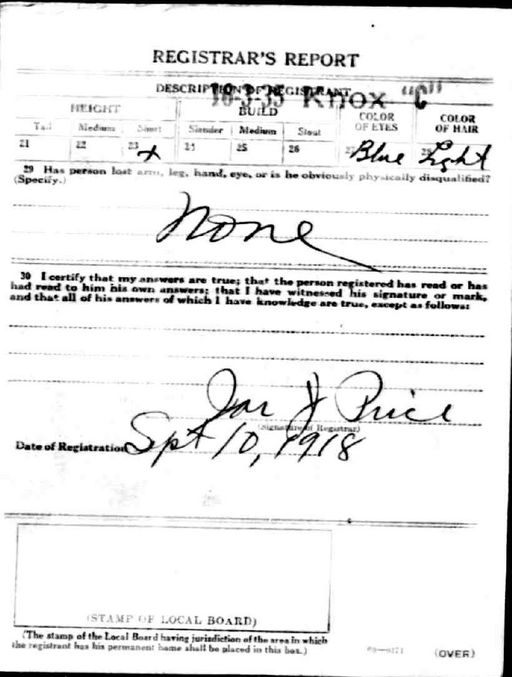 REGISTRAR'S REPORT
DESCRIPTION OF REGISTRANT
16-3-35 Knox "C"
HEIGHT BUILD COLOR OF EYES COLOR OF HAIR
Tall Medium Short Slender Medium Stout
21 22 23 x 24 25 26 27 Blue 28 Light
29 Has person lost arm, leg, hand, eye, or is he obviously physically disqualified?
(Specify.)
None
30 I certify that my answers are true; that the person registered has read or has
had read to him his own answers; that I have witnessed his signature or mark,
and that all of his answers of which I have knowledge are true, except as follows:
Jas J Price
(Signature of Registrar)
Date of Registration Spt 10, 1918
(STAMP OF LOCAL BOARD)
(The stamp of the Local Board having jurisdiction of the area in which
the registrant has his permanent home shall be placed in this box.)
(OVER)